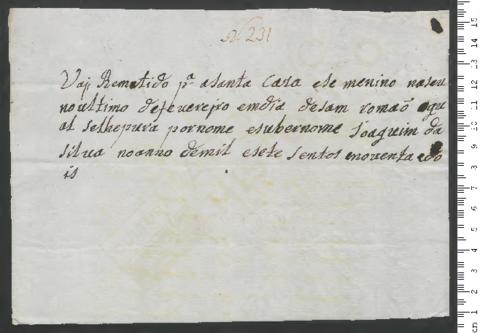 Nº 231
Vaj Remetido pª asanta Caza este menino naseu
noultimo defeuerejro emdia desam romaõ oqu
al selhepura pornome esubernome Joaquim da
silua noanno demil esete sentos enoventa edo
is